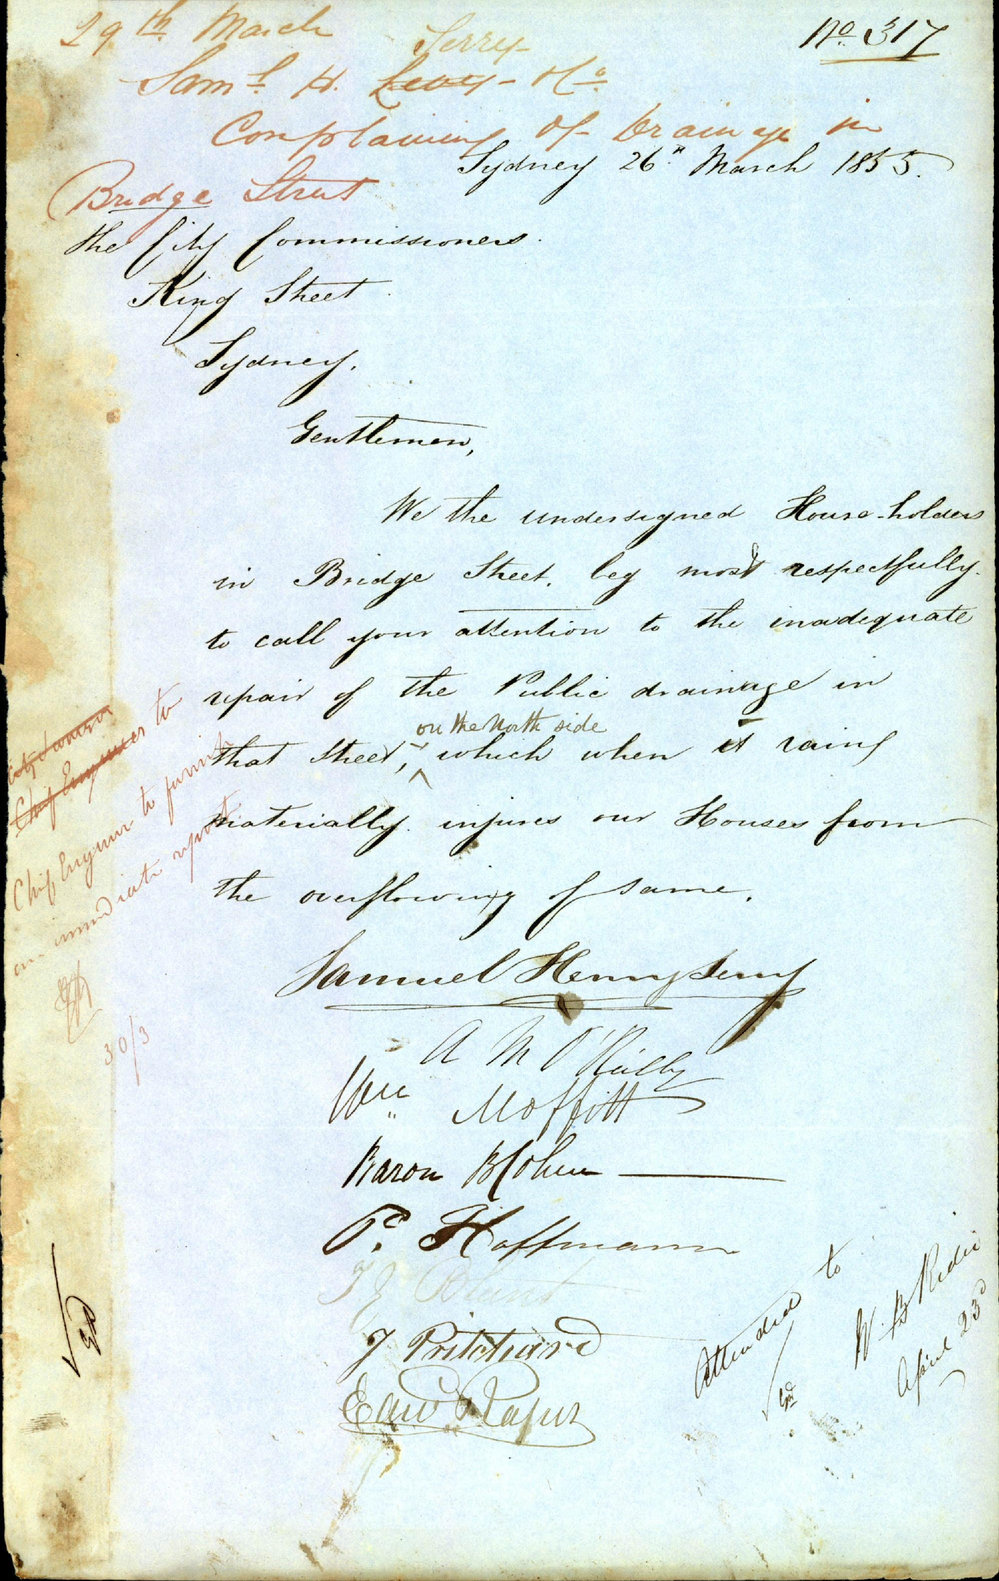 29th March
No. 317
Terry
Saml. H. Levy - &Co
Complaining of Drainage in
Bridge Street
Sydney 26th March 1855.
The City Commissioners.
King Street
Sydney.
Gentlemen,
We the undersigned House-holders
in Bridge Street, beg most respectfully
to call your attention to the inadequate
repair of the Public drainage in
on the North side
that Street, which when it rains
materially injures our Houses from
the overflowing of same.
Samuel Henry Terry
A M O'Reilly
Wm Moffitt
Baron B Cohen
P. Hoffmann
Blunt
J Pritchard
Edwd Raper
City Surveyor
Chief Engineer to
Chief Engineer to furnish
an immediate report
30/3
Attended to
W B Rider
April 23d